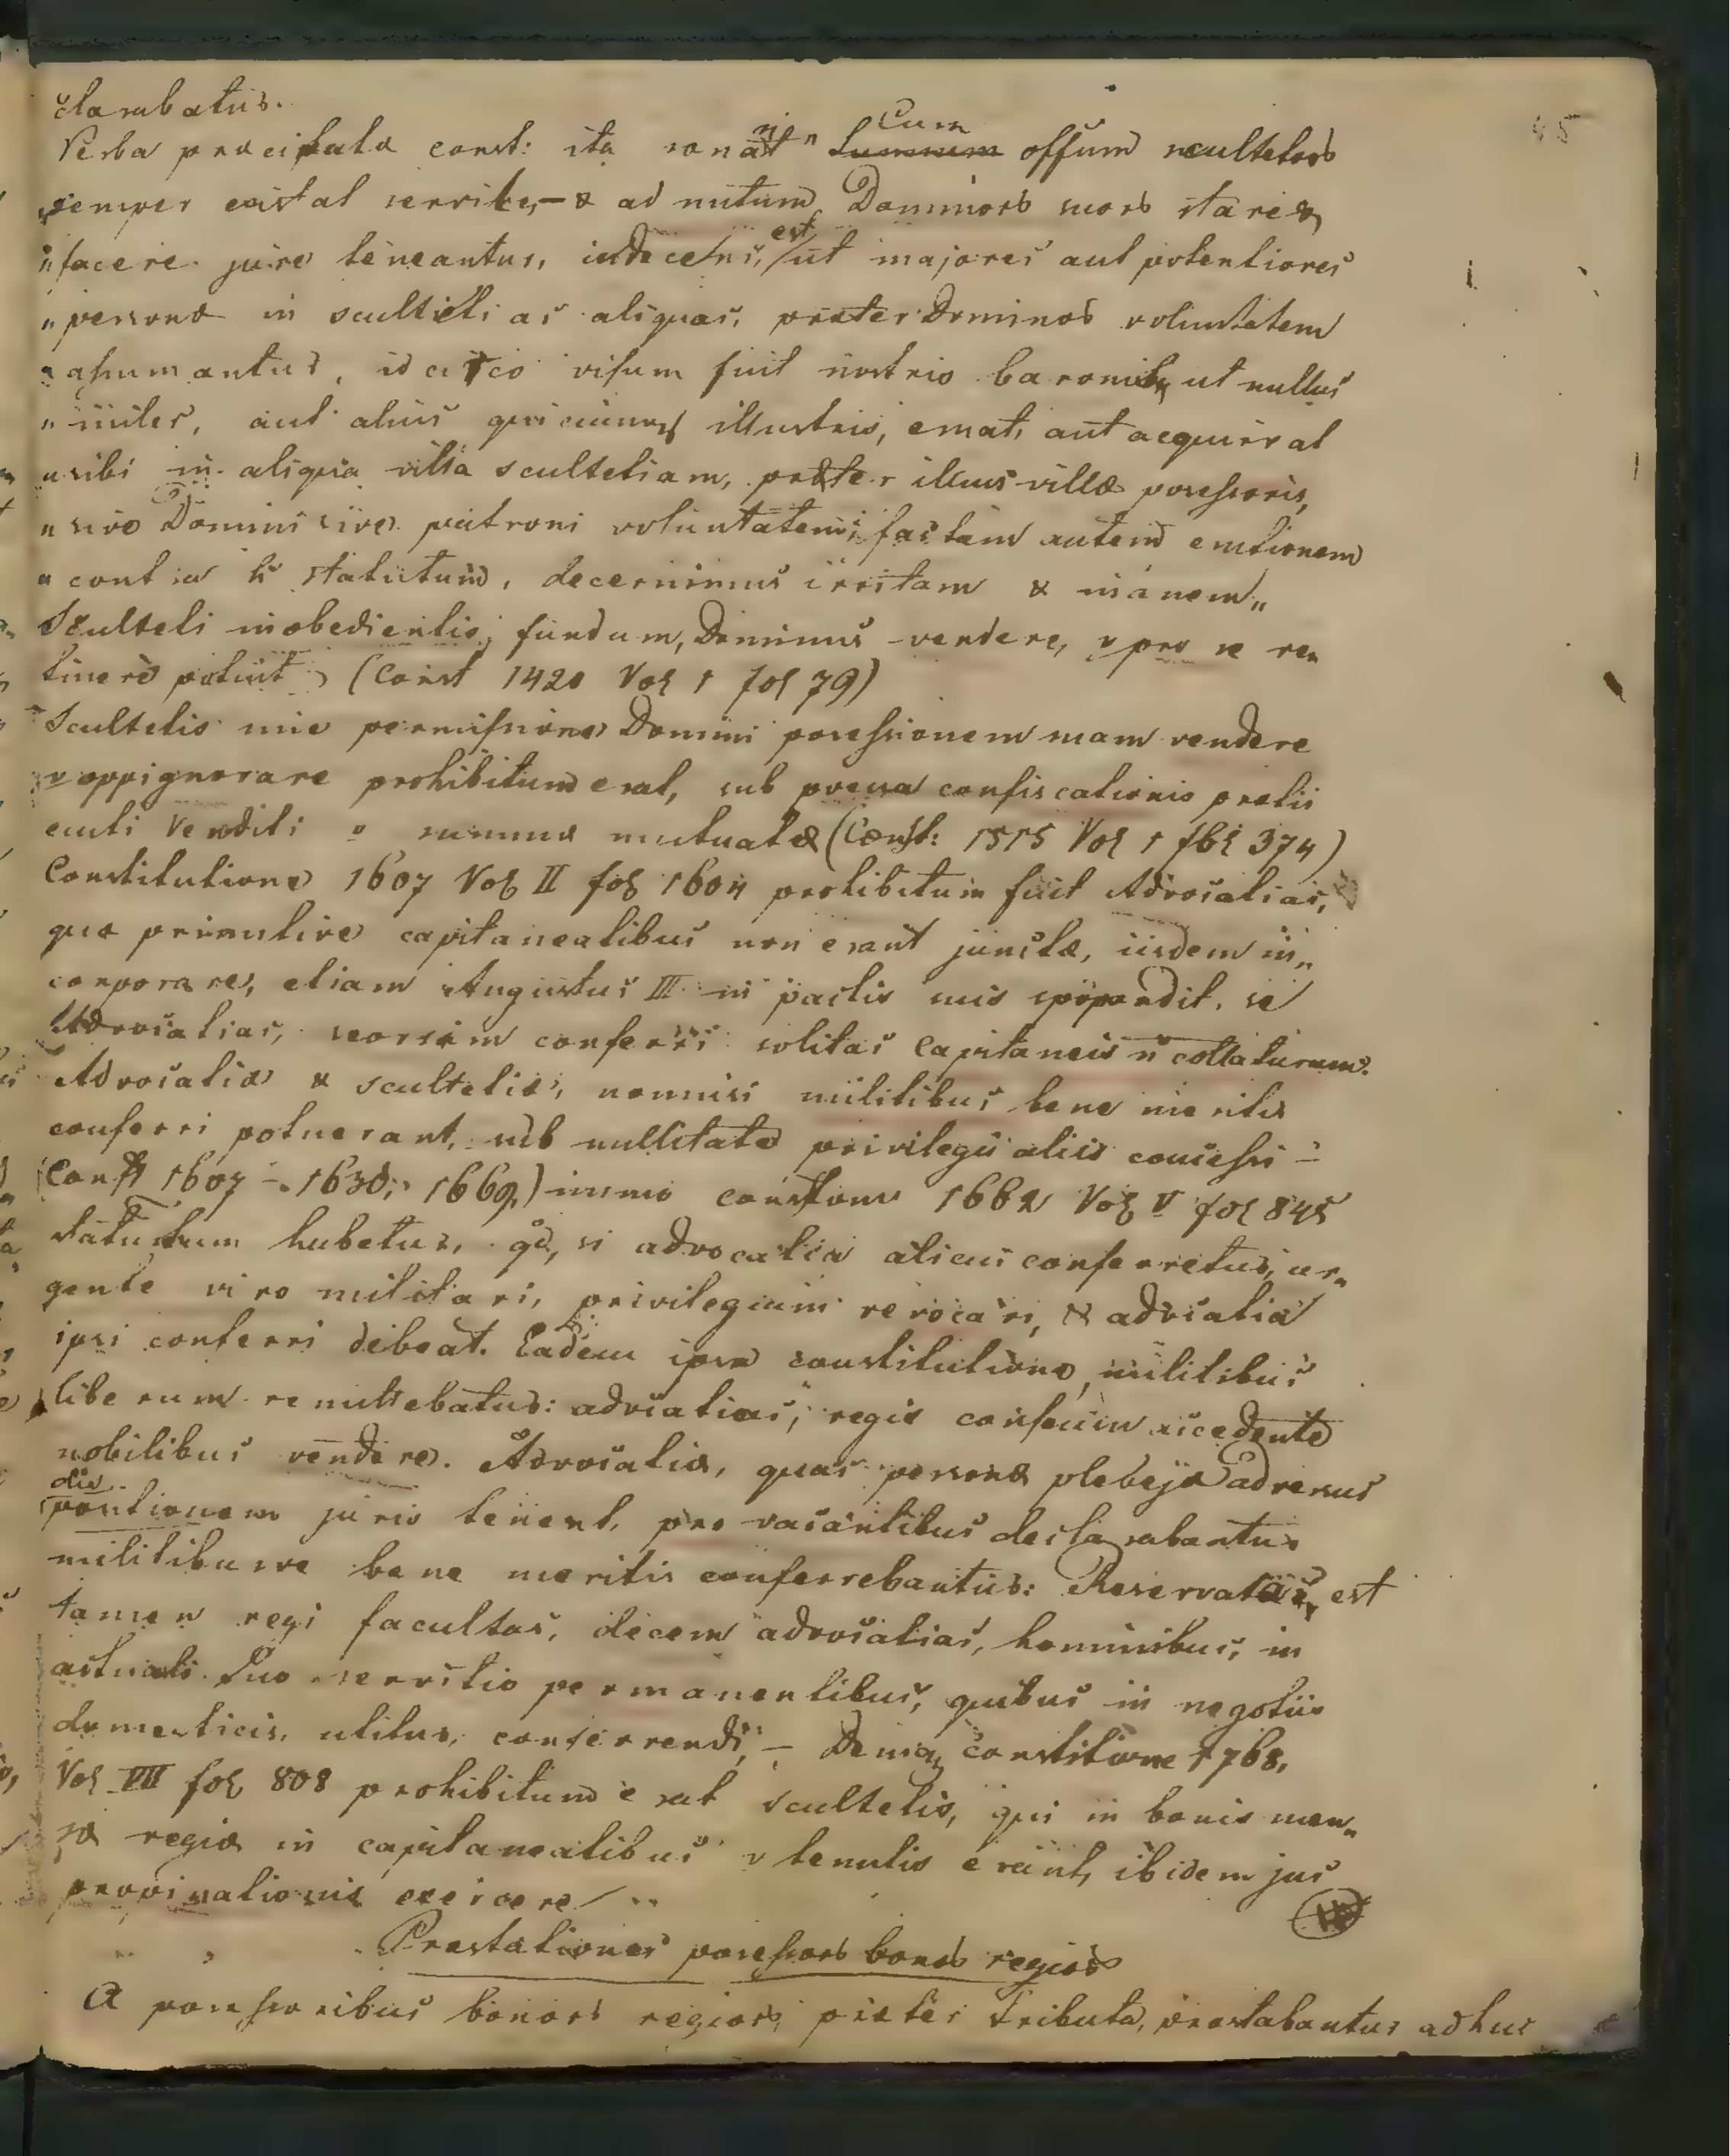 clarabatur.
Verba præcitatæ const: ita sonant „ Cum offum scultetors
„ semper existat servile, – & ad nutum Dominors suors stare &
„ facere jure teneantur, indecens, est ut majores aut potentiores
„ personæ in scultetias aliquas, præter Dominors voluntatem
„ assumantur, id circo visum fuit nostris baronibq ut nullus
„ miles, aut alius quicunq illustris, emat, aut acquirat
„ sibi in aliqua villa scultetiam, præter illius villæ possessoris,
„ sive Domini sive patroni voluntatem; factam autem emtionem
„ contra h statutum, decernimus irritam & inanem „
Sculteti inobedientis, fundum, Dominus vendere, v pro se re„
tinere potuit, (Const 1420 Vol 1 fol 79)
Scultetis sine permissione Domini possessionem suam vendere
v oppignorare prohibitum erat, sub poena confiscationis pretii
emti Venditi v summæ mutuatæ (Const: 1515 Vol 1 fol 374)
Constitutione 1607 Vol II fol 1604 prohibitum fuit Advocatias,
quæ primitive capitaneatibus non erant junctæ, iisdem in„
corporare, etiam Augustus III in pactis suis spopondit, se
Advocatias, seorsim conferri solitas Capitaneis n collaturum.
Advocatiæ & scultetiæ, nonnisi militibus bene meritis
conferri potuerant, sub nullitate privilegii aliis concessi –
(Const 1607 – 1630; 1669,) immo constone 1662 Vol V fol 845
statutum habetur, qd, si advocatia alicui conferretur, ur„
gente viro militari, privilegium revocari, & advocatia
ipsi conferri debeat. Eadem ipsa constitutione, militibus
liberum remittebatur: advocatias, regis consensu accedente
nobilibus vendere. Advocatiæ, quas personæ plebejæ adversus
dis
positionem juris tenent, pro vacantibus declarabantur
militibusve bene meritis conferrebantur: Reservata est
tamen regi facultas, decem advocatias, hominibus, in
actuali suo servitio permanentibus, quibus in negotiis
domesticis, utitur, conferrendi, – Deniq constitione 1768,
Vol VII fol 808 prohibitum erat scultetis, qui in bonis men„
sæ regiæ in capitaneatibus v tenutis erant, ibidem jus
propinationis exercere /
Præstationes possessors bonors regiors
A possessoribus bonors regiors, præter Tributa, præstabantur adhuc